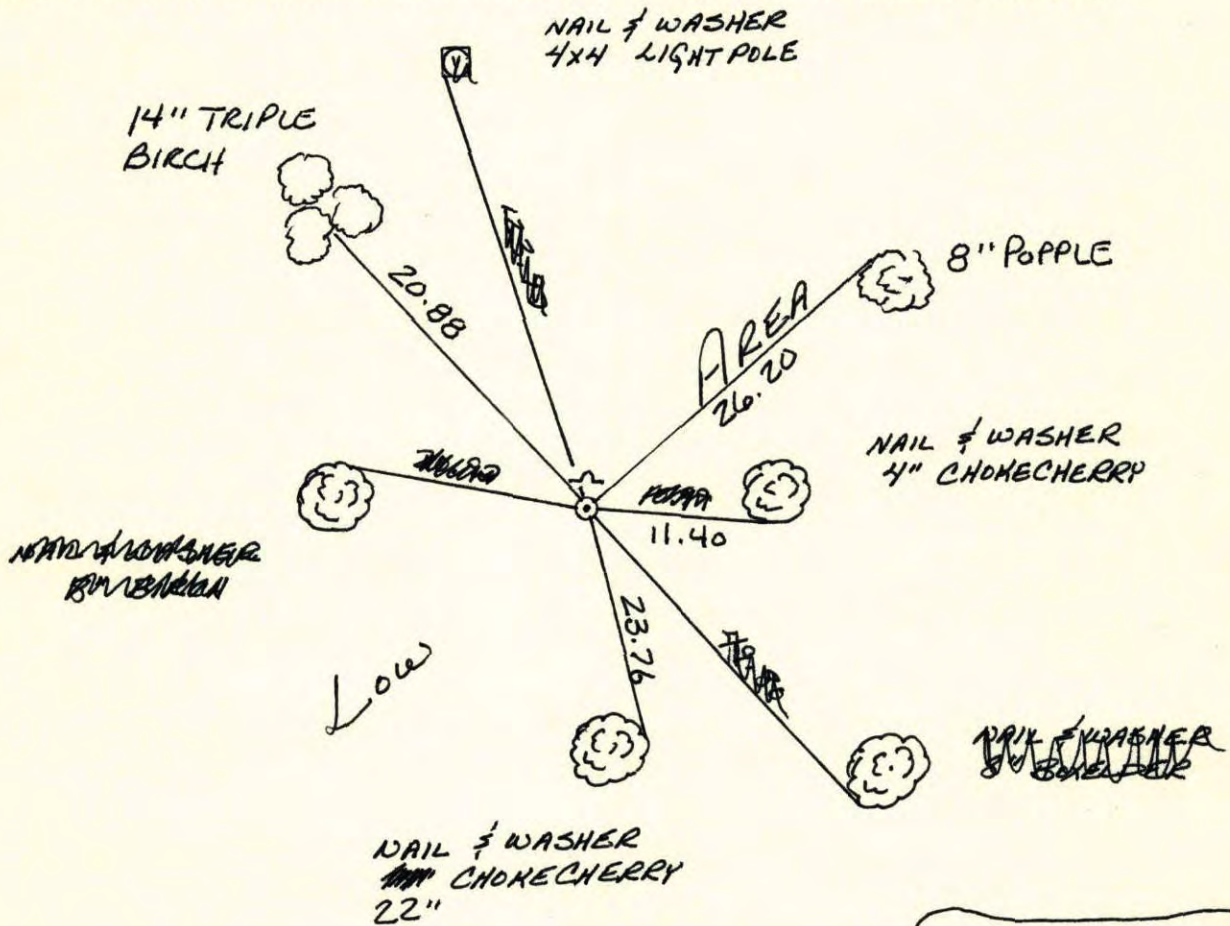 NAIL & WASHER
4x4 LIGHT POLE
14" TRIPLE
BIRCH
20.88
8" POPPLE
AREA
26.20
NAIL & WASHER
4" CHOKECHERRY
11.40
23.76
Low
NAIL & WASHER
CHOKECHERRY
22"